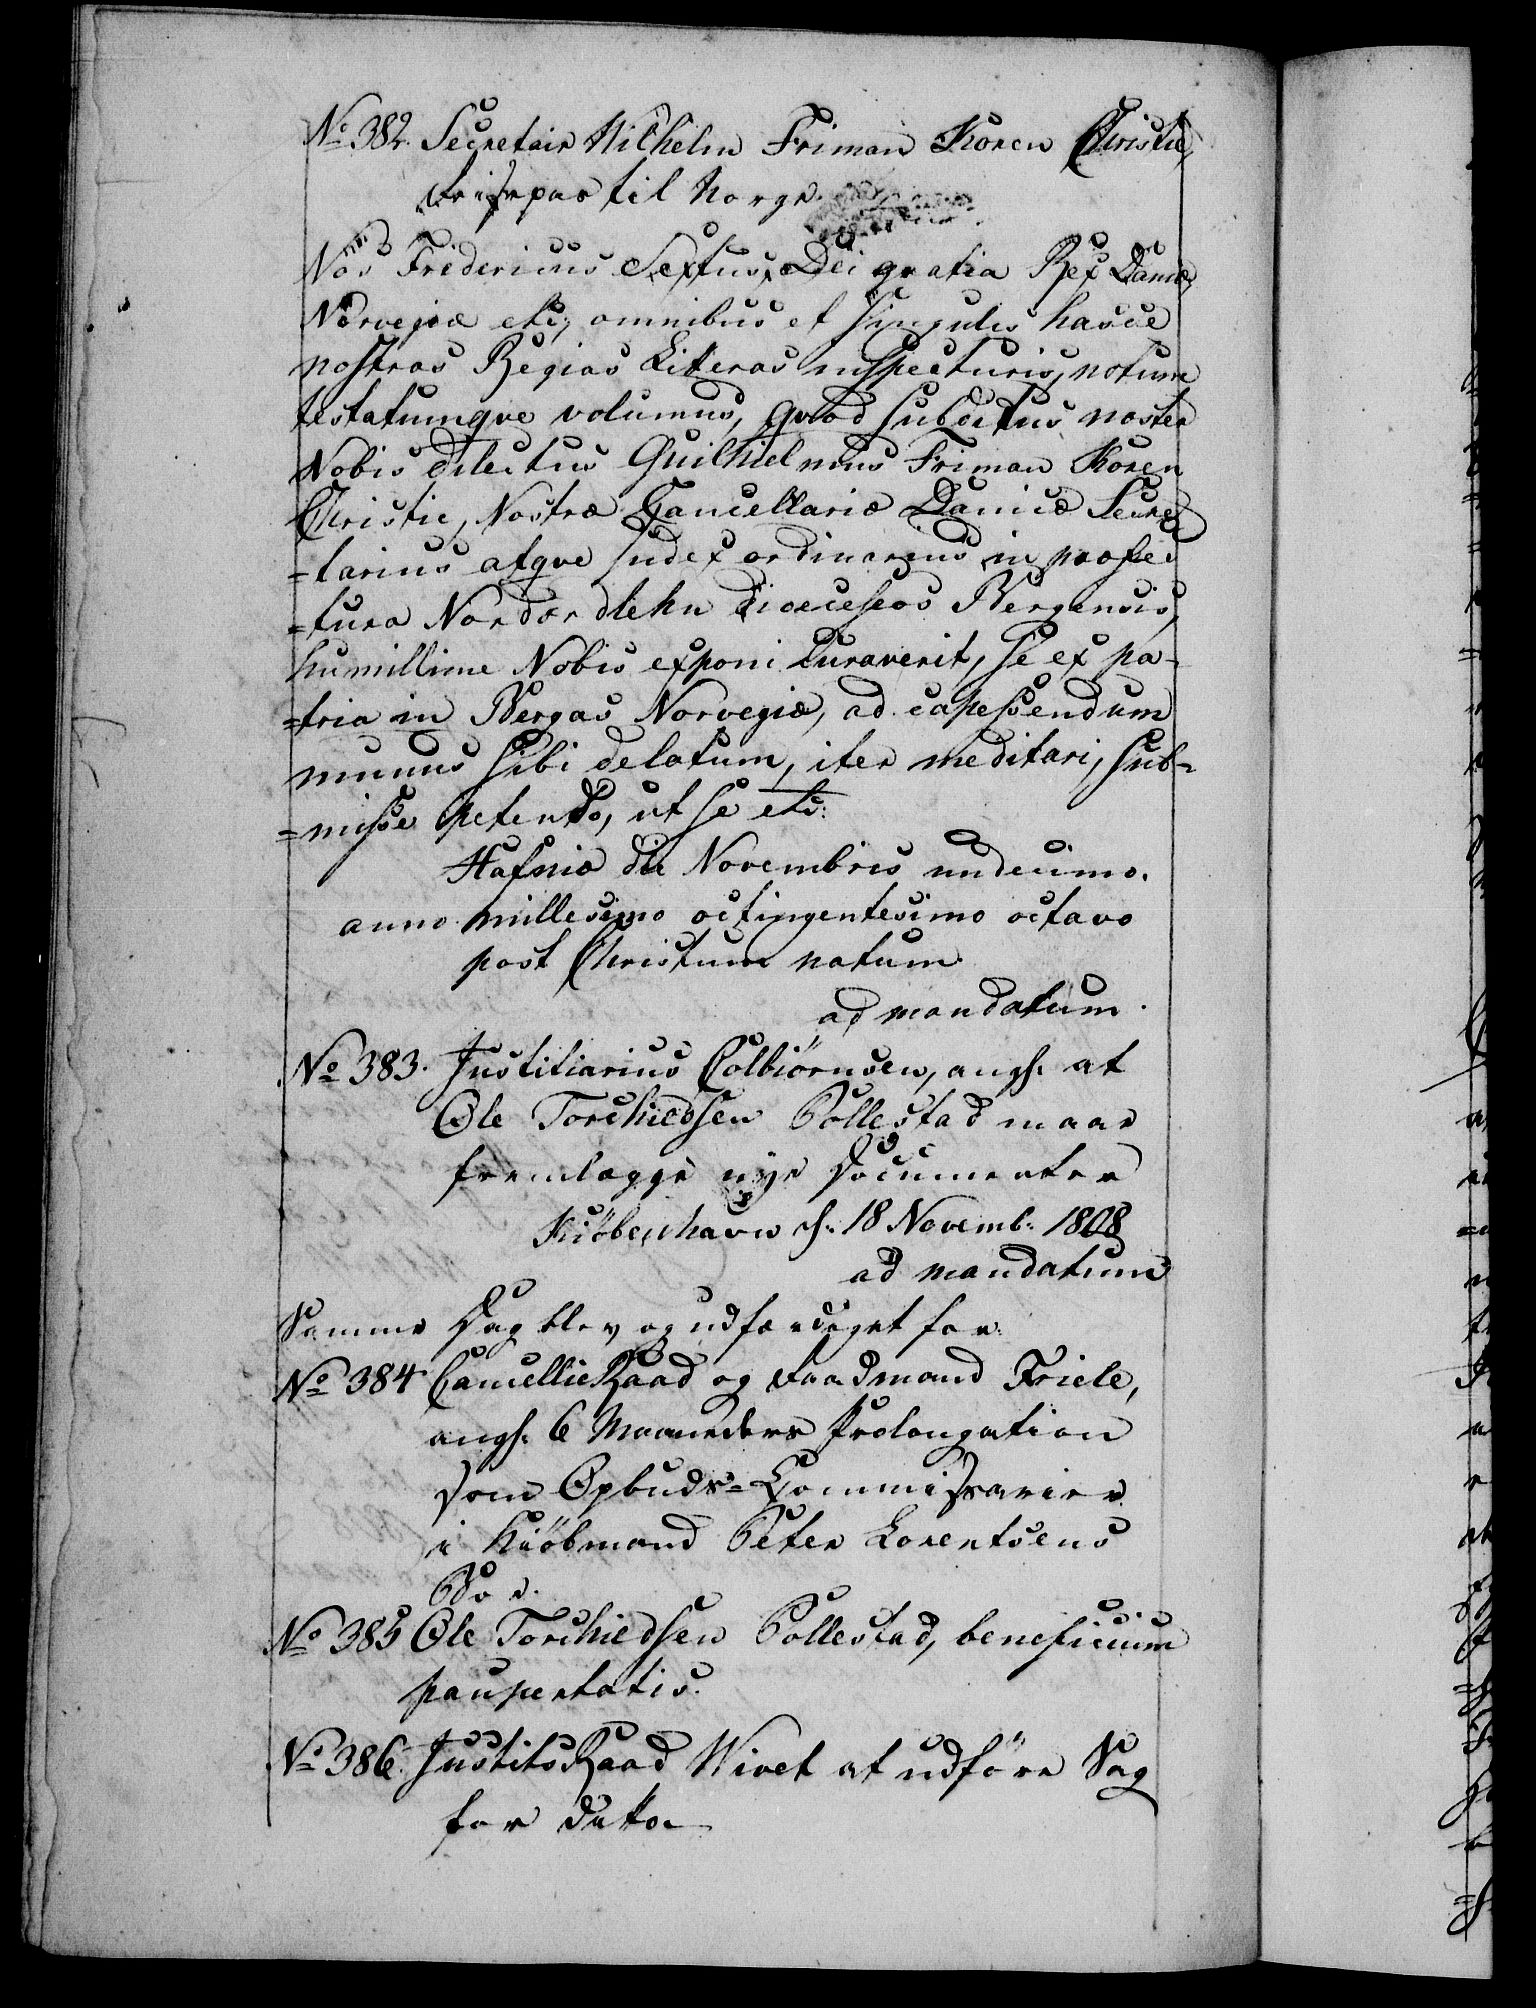 No 382. Secretair Wilhelm Friman Koren Christie,
Reisepas til Norge.
Nos Fridericus Sextus Dei gratia Rex Daniæ,
Norvegiæ etc; omnibus et singulis hasce
nostras Regias Litteras inspecturis, notum
testatumqve volumus, qvod subditus noster
Nobis dilectus Guilhielmus Friman Koren
Christie, Nostræ Cancellariæ Danicæ Secre
=tarius atqve Judex ordinarius in præfec
=tura Nordordlehn dioeceseos Bergensis,
humillime Nobis exponi curaverit, se ex pa-
=tria in Bergas Norvegiæ, ad capessendum
munus sibi delatum, iter meditari, sub=
=misse petendo, ut se etc:
Hafniæ die Novembris undecimo.
anno millesimo octingentesimo octavo
post Christum natum.
ad mandatum.
No 383. Justitiarius Colbiörnsen, angl. at
Ole Torchildsen Pollestad maae
fremlægge nye Documenter
Kiöbenhavn d. 18 Novemb. 1808
ad mandatum
Samme Dag blev og udfærdiget for
No 384 CancellieRaad og Raadmand Friele,
angl. 6 Maaneders Prolongation
som Opbuds=Commissarier
i Kiöbmand Peter Lorentsens
Boe.
No 385 Ole Torchildsen Pollestad, beneficium
paupertatis.
No 386. JustitsRaad Wivet at udföre Sag
for ditto